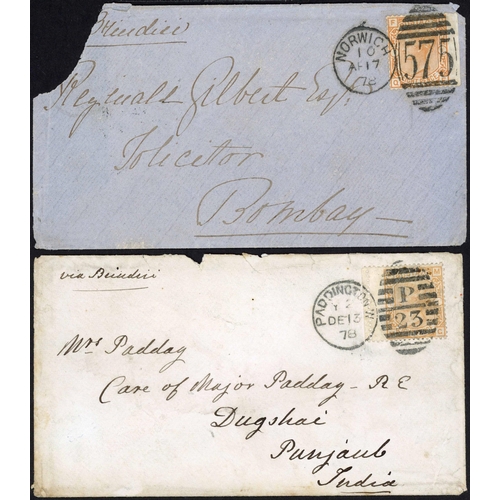 Brindisi
NORWICH
10
AP 17
78
575
Reginald Gilbert Esq:
Solicitor
Bombay
via Brindisi
PADDINGTON W
DE 13
78
P
23
Mrs Padday
Care of Major Padday - R E
Dugshai
Punjaub
India